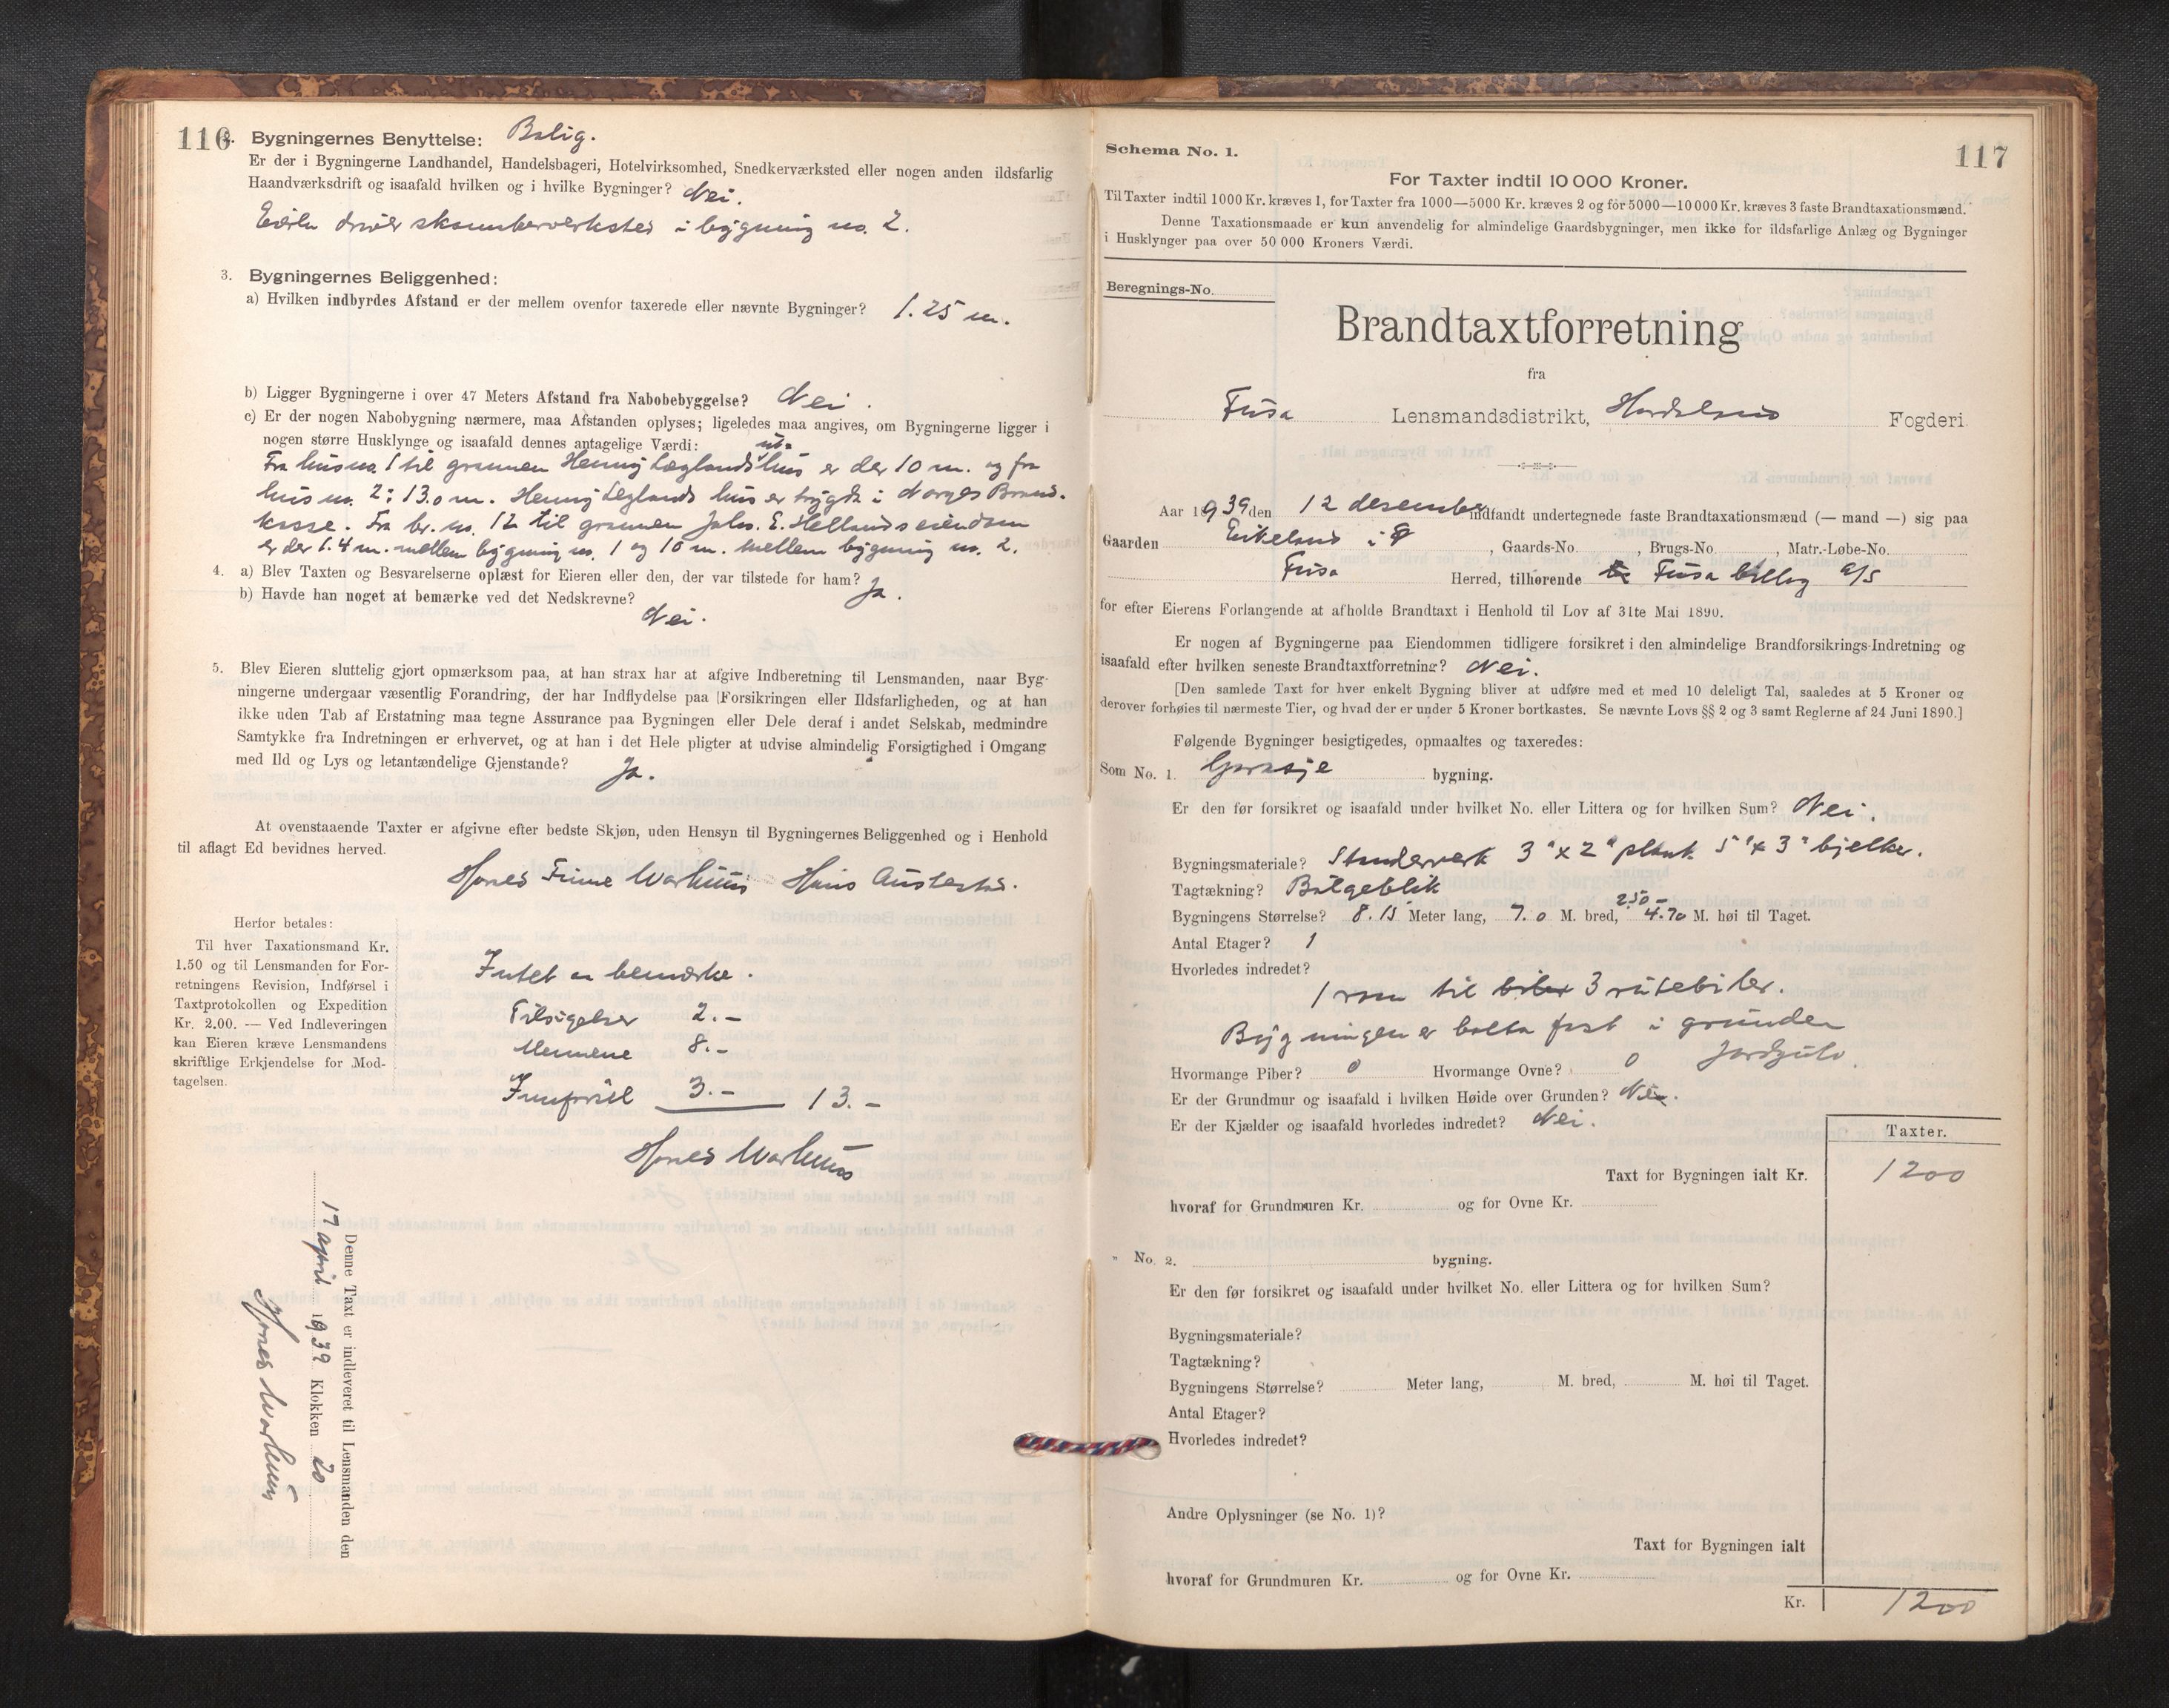 116
2. Bygningernes Benyttelse: Bolig.
Er der i Bygningerne Landhandel, Handelsbageri, Hotelvirksomhed, Snedkerværksted eller nogen anden ildsfarlig
Haandværksdrift og isaafald hvilken og i hvilke Bygninger? Nei.
driver skomakerverksted i bygning no. 2.
3. Bygningernes Beliggenhed:
a) Hvilken indbyrdes Afstand er der mellem ovenfor taxerede eller nævnte Bygninger? 1.25 m.
b) Ligger Bygningerne i over 47 Meters Afstand fra Nabobebyggelse? Nei.
c) Er der nogen Nabobygning nærmere, maa Afstanden oplyses; ligeledes maa angives, om Bygningerne ligger i
nogen større Husklynge og isaafald dennes antagelige Værdi:
Fra hus no. 1 til grannen Henny Leglands hus er der 10 m. og fra
hus no. 2: 13.0 m. Henny Leglands hus er trygda i Norges Brand-
kasse. Fra br. no. 12 til grannen Johs. E. Hellands eiendom
er der 1.4 m. mellem bygning no. 1 og 10 m. mellem bygning no. 2.
4. a) Blev Taxten og Besvarelserne oplæst for Eieren eller den, der var tilstede for ham? Ja.
b) Havde han noget at bemærke ved det Nedskrevne?
Nei.
5. Blev Eieren sluttelig gjort opmærksom paa, at han strax har at afgive Indberetning til Lensmanden, naar Byg-
ningerne undergaar væsentlig Forandring, der har Indflydelse paa Forsikringen eller Ildsfarligheden, og at han
ikke uden Tab af Erstatning maa tegne Assurance paa Bygningen eller Dele deraf i andet Selskab, medmindre
Samtykke fra Indretningen er erhvervet, og at han i det Hele pligter at udvise almindelig Forsigtighed i Omgang
med Ild og Lys og letantændelige Gjenstande? Ja.
At ovenstaaende Taxter er afgivne efter bedste Skjøn, uden Hensyn til Bygningernes Beliggenhed og i Henhold
til aflagt Ed bevidnes herved.
Hans
Herfor betales:
Til hver Taxationsmand Kr.
1.50 og til Lensmanden for For-
retningens Revision, Indførsel i
Taxtprotokollen og Expedition
Kr. 2.00. — Ved Indleveringen
kan Eieren kræve Lensmandens
skriftlige Erkjendelse for Mod-
tagelsen.
Intet at bemerke.
Tilsigelser 2.-
Mennene 8.-
Innførsel 3.- 13.-
Denne Taxt er indleveret til Lensmanden den
17 april 1939 Klokken 20
Schema No. 1.
117
For Taxter indtil 10 000 Kroner.
Til Taxter indtil 1000 Kr. kræves 1, for Taxter fra 1000—5000 Kr. kræves 2 og for 5000—10 000 Kr. kræves 3 faste Brandtaxationsmænd.
Denne Taxationsmaade er kun anvendelig for almindelige Gaardsbygninger, men ikke for ildsfarlige Anlæg og Bygninger
i Husklynger paa over 50 000 Kroners Værdi.
Beregnings-No.
Brandtaxtforretning
fra
Fusa Lensmandsdistrikt, Hordaland Fogderi.
Aar 1939 den 12 desember indfandt undertegnede faste Brandtaxationsmænd (— mand —) sig paa
Gaarden Eikeland i , Gaards-No. , Brugs-No. , Matr.-Løbe-No.
Fusa Herred, tilhørende Fusa billag a/s
for efter Eierens Forlangende at afholde Brandtaxt i Henhold til Lov af 31te Mai 1890.
Er nogen af Bygningerne paa Eiendommen tidligere forsikret i den almindelige Brandforsikrings-Indretning og
isaafald efter hvilken seneste Brandtaxtforretning? Nei.
[Den samlede Taxt for hver enkelt Bygning bliver at udføre med et med 10 deleligt Tal, saaledes at 5 Kroner og
derover forhøies til nærmeste Tier, og hvad der er under 5 Kroner bortkastes. Se nævnte Lovs §§ 2 og 3 samt Reglerne af 24 Juni 1890.]
Følgende Bygninger besigtigedes, opmaaltes og taxeredes:
Som No. 1. Garasje bygning.
Er den før forsikret og isaafald under hvilket No. eller Littera og for hvilken Sum? Nei.
Bygningsmateriale? Standerverk 3" x 2" plank 5" x 3" bjelker.
Tagtækning? Bølgeblik
Bygningens Størrelse? 8.15 Meter lang, 7.0 M. bred, 2.50 - 4.70 M. høi til Taget.
Antal Etager? 1
Hvorledes indredet?
1 rom til biler 3 rutebiler.
Bygningen er bolta fast i grunden
Jordgulv.
Hvormange Piber? 0 Hvormange Ovne? 0
Er der Grundmur og isaafald i hvilken Høide over Grunden? Nei.
Er der Kjælder og isaafald hvorledes indredet? Nei.
Taxter.
Taxt for Bygningen ialt Kr. 1200
hvoraf for Grundmuren Kr. og for Ovne Kr.
" No. 2. bygning.
Er den før forsikret og isaafald under hvilket No. eller Littera og for hvilken Sum?
Bygningsmateriale?
Tagtækning?
Bygningens Størrelse? Meter lang, M. bred, M. høi til Taget.
Antal Etager?
Hvorledes indredet?
Andre Oplysninger (se No. 1)?
Taxt for Bygningen ialt
hvoraf for Grundmuren Kr. og for Ovne Kr.
Kr. 1200